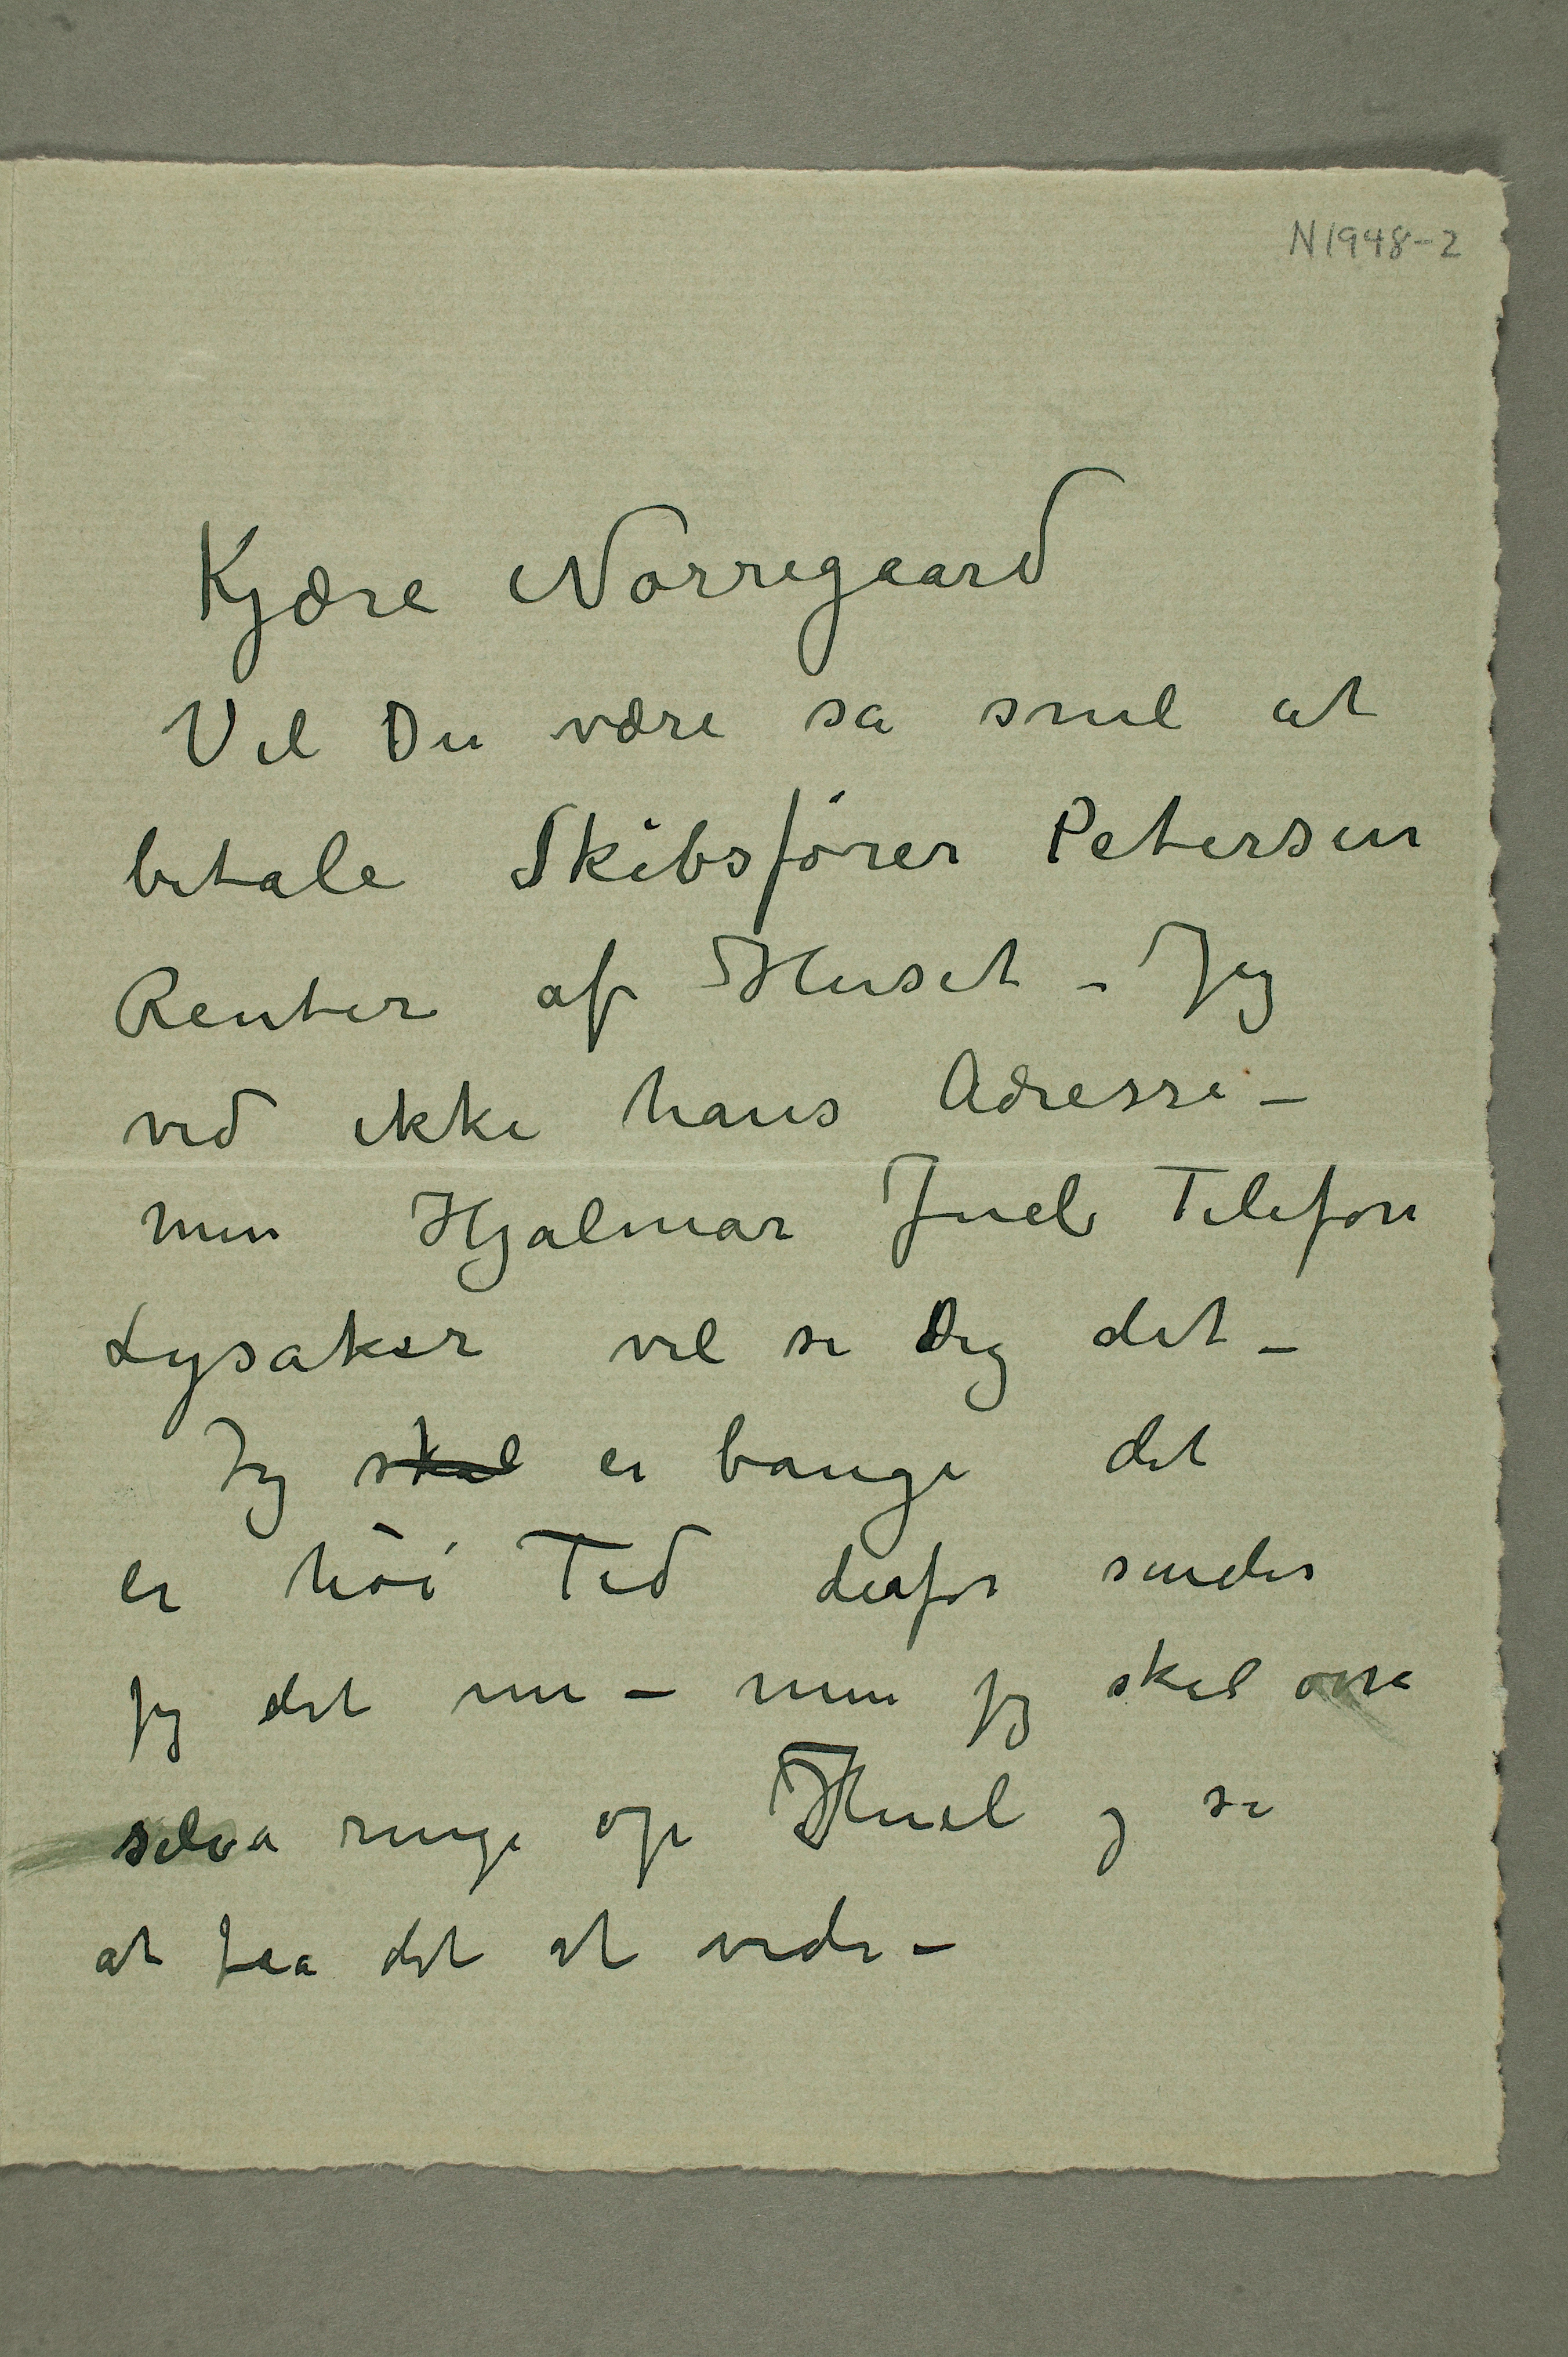 N1948-2
Kjære Nørregaard
Vil Du være sa snil at
betale Skibsfører Petersen
Renter af Huset – Jeg
ved ikke hans Adresse –
men Hjalmar Juel Telefon
Lysaker vil si Dig det –
Jeg skal er bange det
er høi Tid derfor sender
jeg det nu – men jeg skal ossa
selva ringe op Juel og se
at faa det at vede –